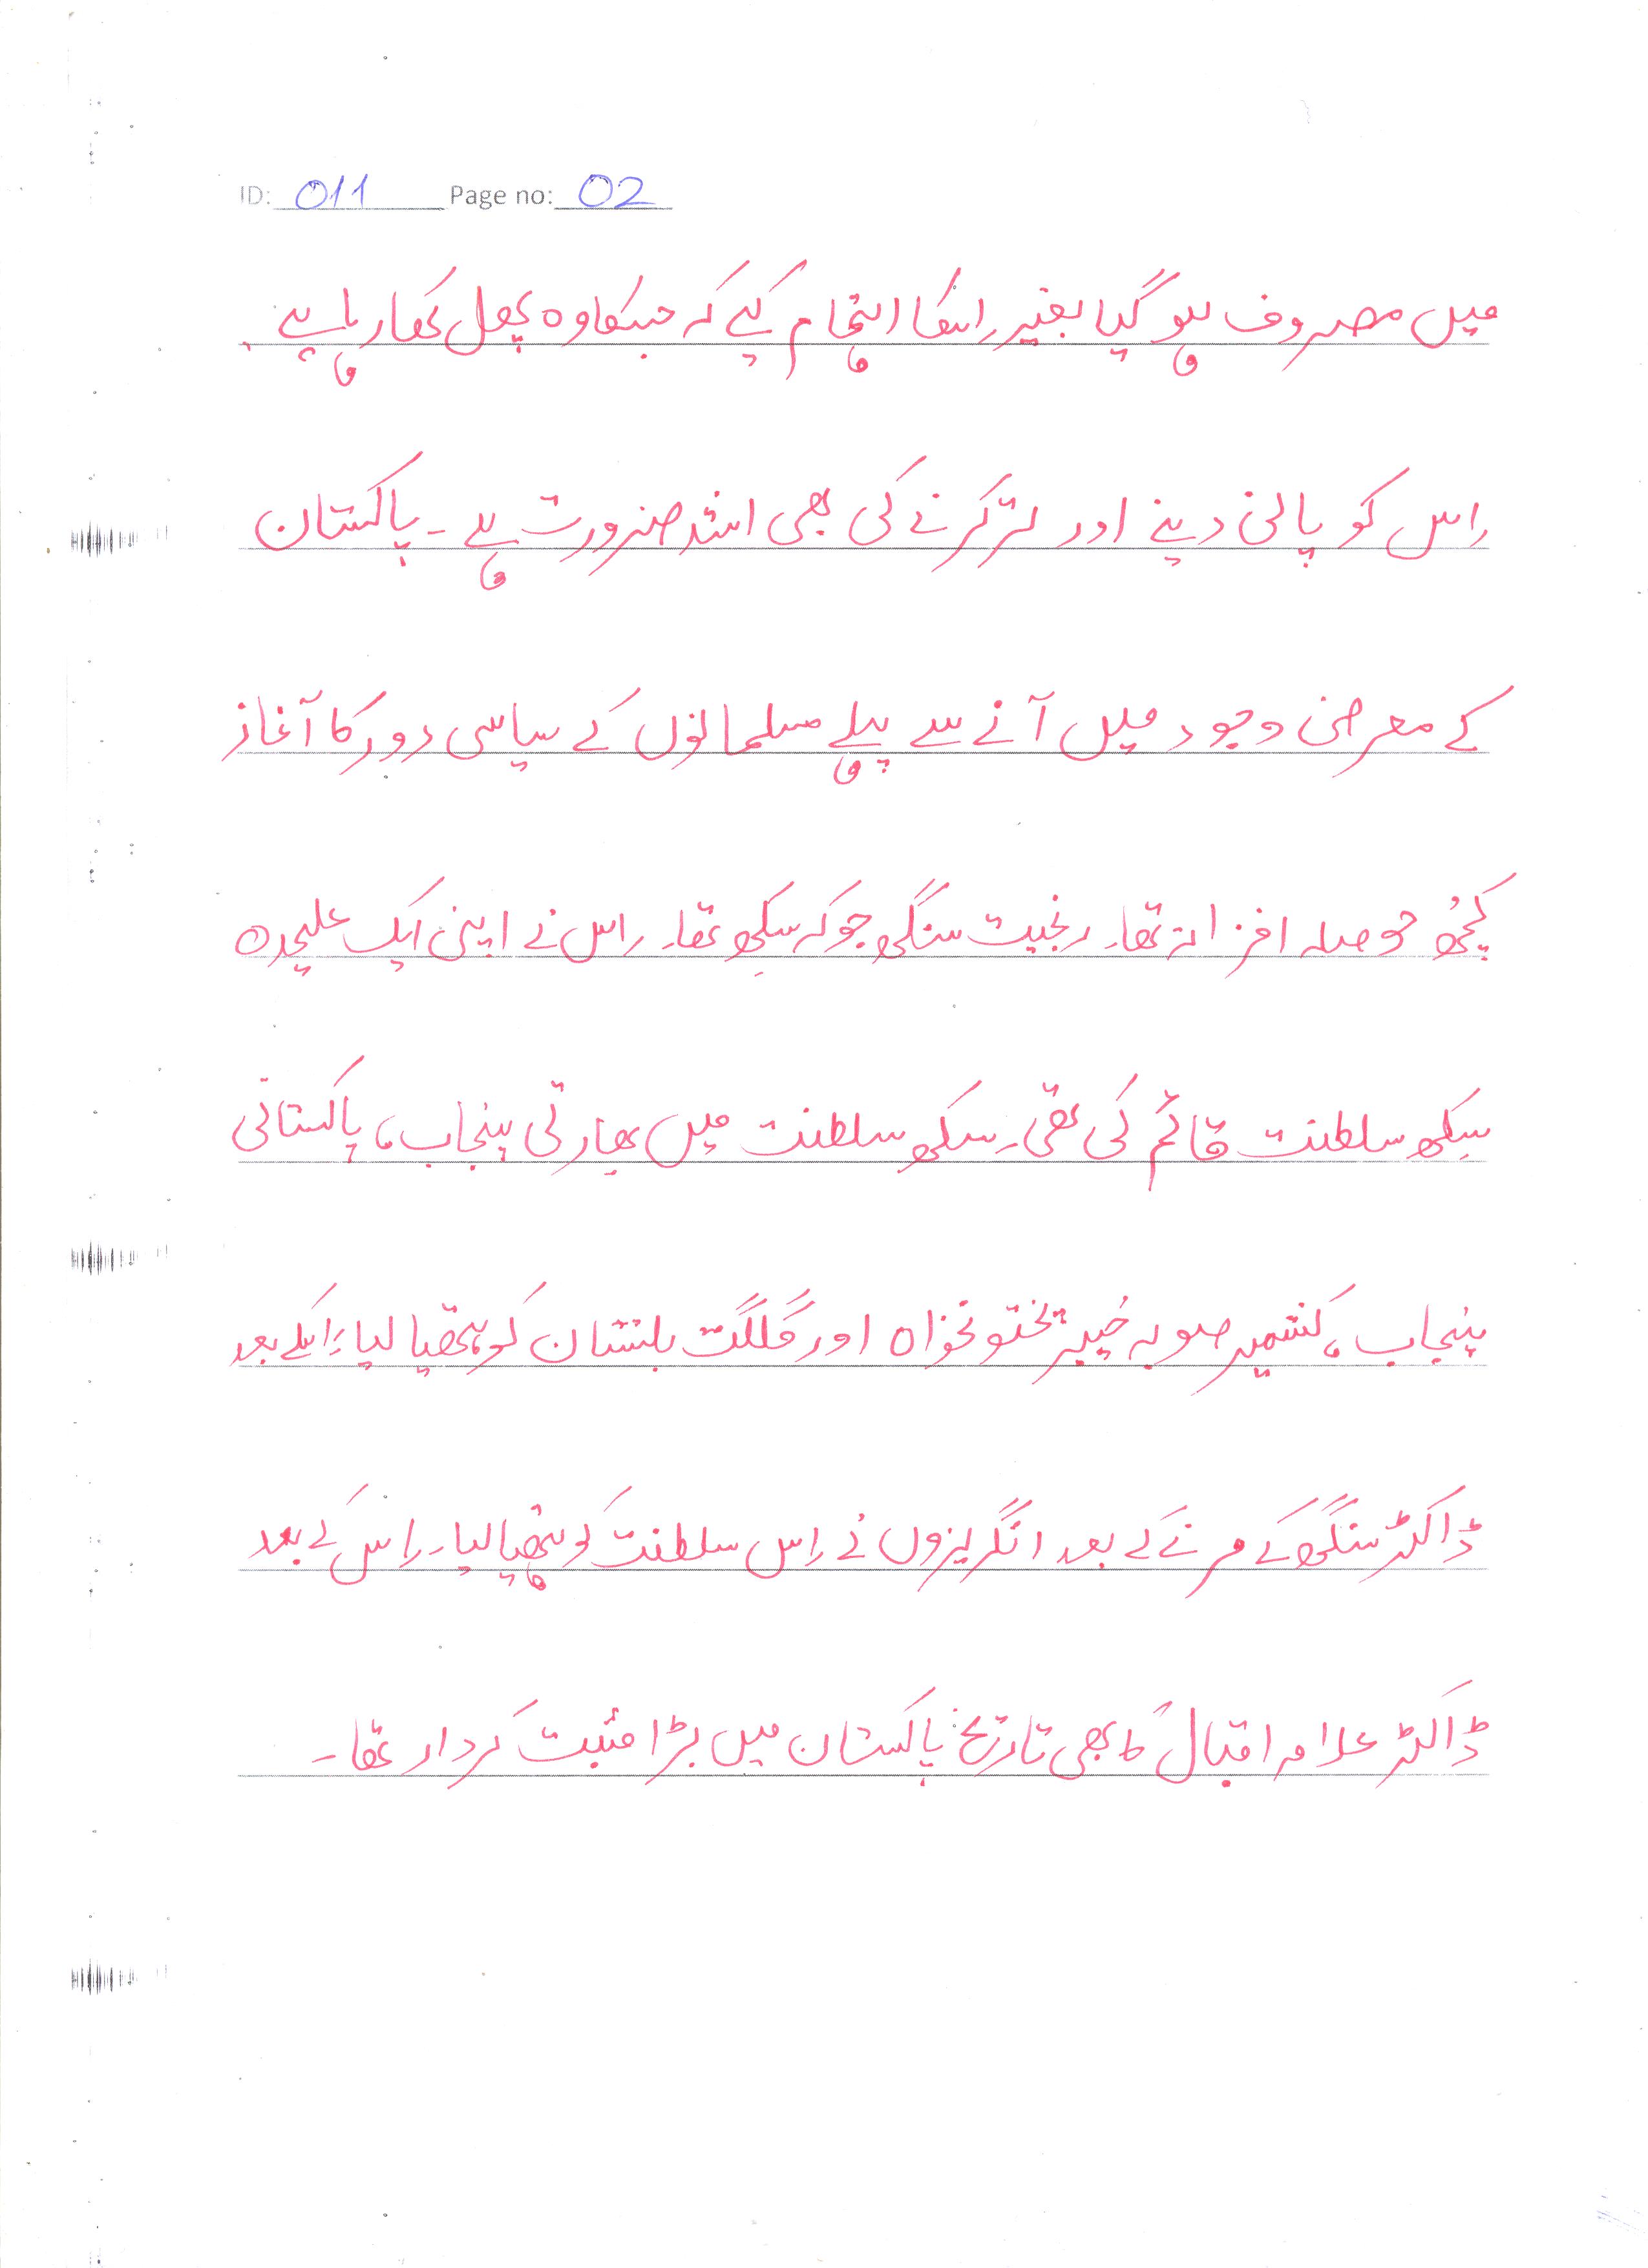 ID: 011 Page no: 02
میں مصروف ہو گیا بغیر اسکا اہتمام کیے کہ جسکا وہ پھل کھا رہا ہے۔
اس کو پانی دینے اور تر کرنے کی بھی اشد ضرورت ہے۔ پاکستان
کے معرض وجود میں آنے سے پہلے مسلمانوں کے سیاسی دور کا آغاز
کچھ حوصلہ افزا نہ تھا۔ رنجیت سنگھ جو کہ سکھ تھا۔ اس نے اپنی ایک علیحدہ
سکھ سلطنت قائم کی تھی۔ سکھ سلطنت میں بھارتی پنجاب، پاکستانی
پنجاب، کشمیر صوبہ خیبر پختونخواہ اور گلگت بلتستان کو ہتھیا لیا۔ اسکے بعد
ڈاکٹر سنگھ کے مرنے کے بعد انگریزوں نے اس سلطنت کو ہتھیا لیا۔ اس کے بعد
ڈاکٹر علامہ اقبال کا بھی تاریخ پاکستان میں بڑا مثبت کردار تھا۔